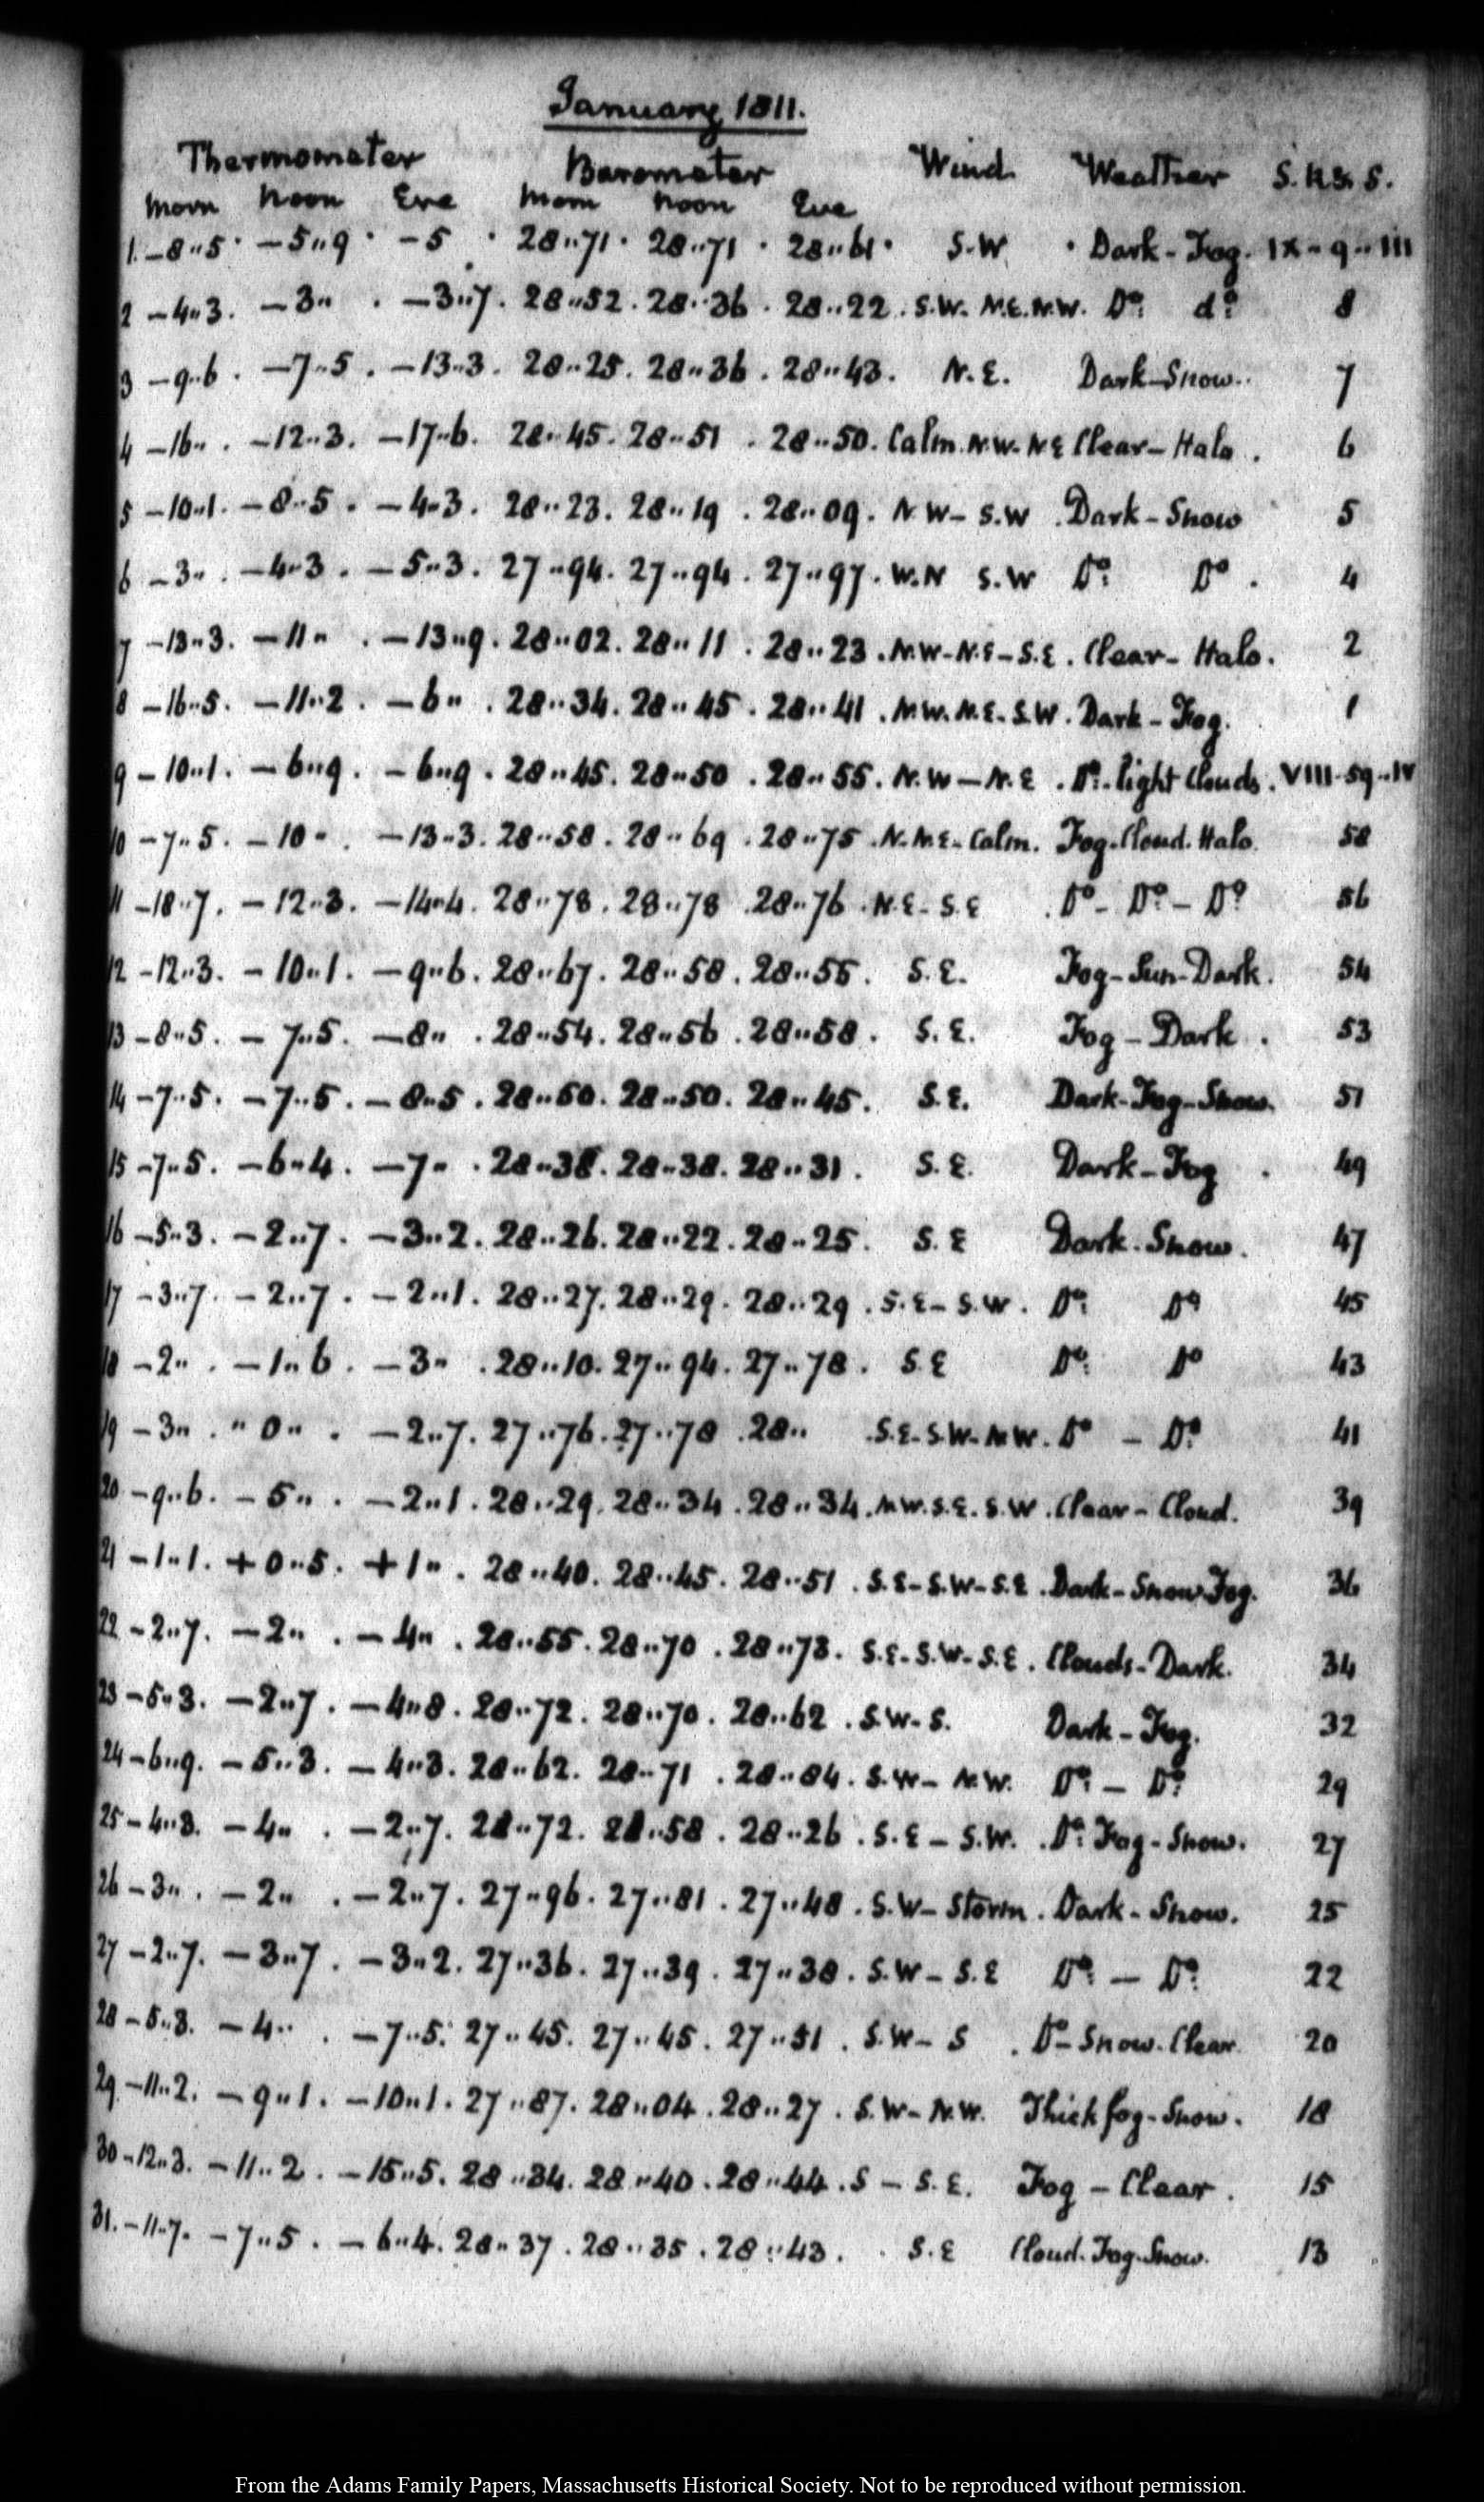 January 1811.
Thermometer Barometer Wind Weather S. R. & S.
Morn Noon Eve Morn Noon Eve
1. -8..5. -5..9. -5. 28..71. 28..71. 28..61. S.W. Dark - Fog. IX - 9..III
2 -4..3. -3... -3..7. 28..52. 28..36. 28..22. S.W. N.E. N.W. Do. do. 8
3 -9..6. -7..5. -13..3. 28..25. 28..36. 28..43. N.E. Dark-Snow.. 7
4 -16... -12..3. -17..6. 28..45. 28..51. 28..50. Calm. N.W. N.E Clear - Halo. 6
5 -10..1. -8..5. -4..3. 28..23. 28..19. 28..09. N.W - S.W. Dark - Snow 5
6 -3... -4..3. -5..3. 27..94. 27..94. 27..97. W.N S.W Do. Do. 4
7 -13..3. -11... -13..9. 28..02. 28..11. 28..23. N.W-N.E-S.E. Clear - Halo. 2
8 -16..5. -11..2. -6... 28..34. 28..45. 28..41. N.W. N.E. S.W. Dark - Fog. 1
9 -10..1. -6..9. -6..9. 28..45. 28..50. 28..55. N.W - N.E. Do. light Clouds. VIII-59..IV
10 -7..5. -10... -13..3. 28..58. 28..69. 28..75. N. N.E. Calm. Fog. Cloud. Halo. 58
11 -18..7. -12..3. -14..4. 28..78. 28..78. 28..76. N.E - S.E. Do - Do - Do 56
12 -12..3. -10..1. -9..6. 28..67. 28..58. 28..55. S.E. Fog - Sun - Dark. 54
13 -8..5. -7..5. -8... 28..54. 28..56. 28..58. S.E. Fog - Dark. 53
14 -7..5. -7..5. -8..5. 28..50. 28..50. 28..45. S.E. Dark - Fog - Snow. 51
15 -7..5. -6..4. -7... 28..38. 28..38. 28..31. S.E. Dark - Fog. 49
16 -5..3. -2..7. -3..2. 28..26. 28..22. 28..25. S.E Dark. Snow. 47
17 -3..7. -2..7. -2..1. 28..27. 28..29. 28..29. S.E - S.W. Do. Do 45
18 -2... -1..6. -3... 28..10. 27..94. 27..78. S.E Do. Do 43
19 -3... "0... -2..7. 27..76. 27..78. 28.. S.E. S.W. N.W. Do - Do. 41
20 -9..6. -5... -2..1. 28..29. 28..34. 28..34. N.W. S.E. S.W. Clear - Cloud. 39
21 -1..1. +0..5. +1... 28..40. 28..45. 28..51. S.E - S.W - S.E. Dark - Snow Fog. 36
22 -2..7. -2... -4... 28..55. 28..70. 28..73. S.E. S.W. S.E. Clouds - Dark. 34
23 -5..3. -2..7. -4..8. 28..72. 28..70. 28..62. S.W. S. Dark - Fog. 32
24 -6..9. -5..3. -4..3. 28..62. 28..71. 28..84. S.W - N.W. Do. - Do. 29
25 -4..8. -4... -2..7. 28..72. 28..58. 28..26. S.E - S.W. Do. Fog - Snow. 27
26 -3... -2... -2..7. 27..96. 27..81. 27..48. S.W - Storm. Dark - Snow. 25
27 -2..7. -3..7. -3..2. 27..36. 27..39. 27..38. S.W - S.E Do. - Do. 22
28 -5..3. -4... -7..5. 27..45. 27..45. 27..51. S.W - S. Do - Snow. Clear. 20
29. -11..2. -9..1. -10..1. 27..87. 28..04. 28..27. S.W - N.W. Thick fog - Snow. 18
30 -12..3. -11..2. -15..5. 28..34. 28..40. 28..44. S - S.E. Fog - Clear. 15
31. -11..7. -7..5. -6..4. 28..37. 28..35. 28..43. S.E Cloud. Fog. Snow. 13
From the Adams Family Papers, Massachusetts Historical Society. Not to be reproduced without permission.